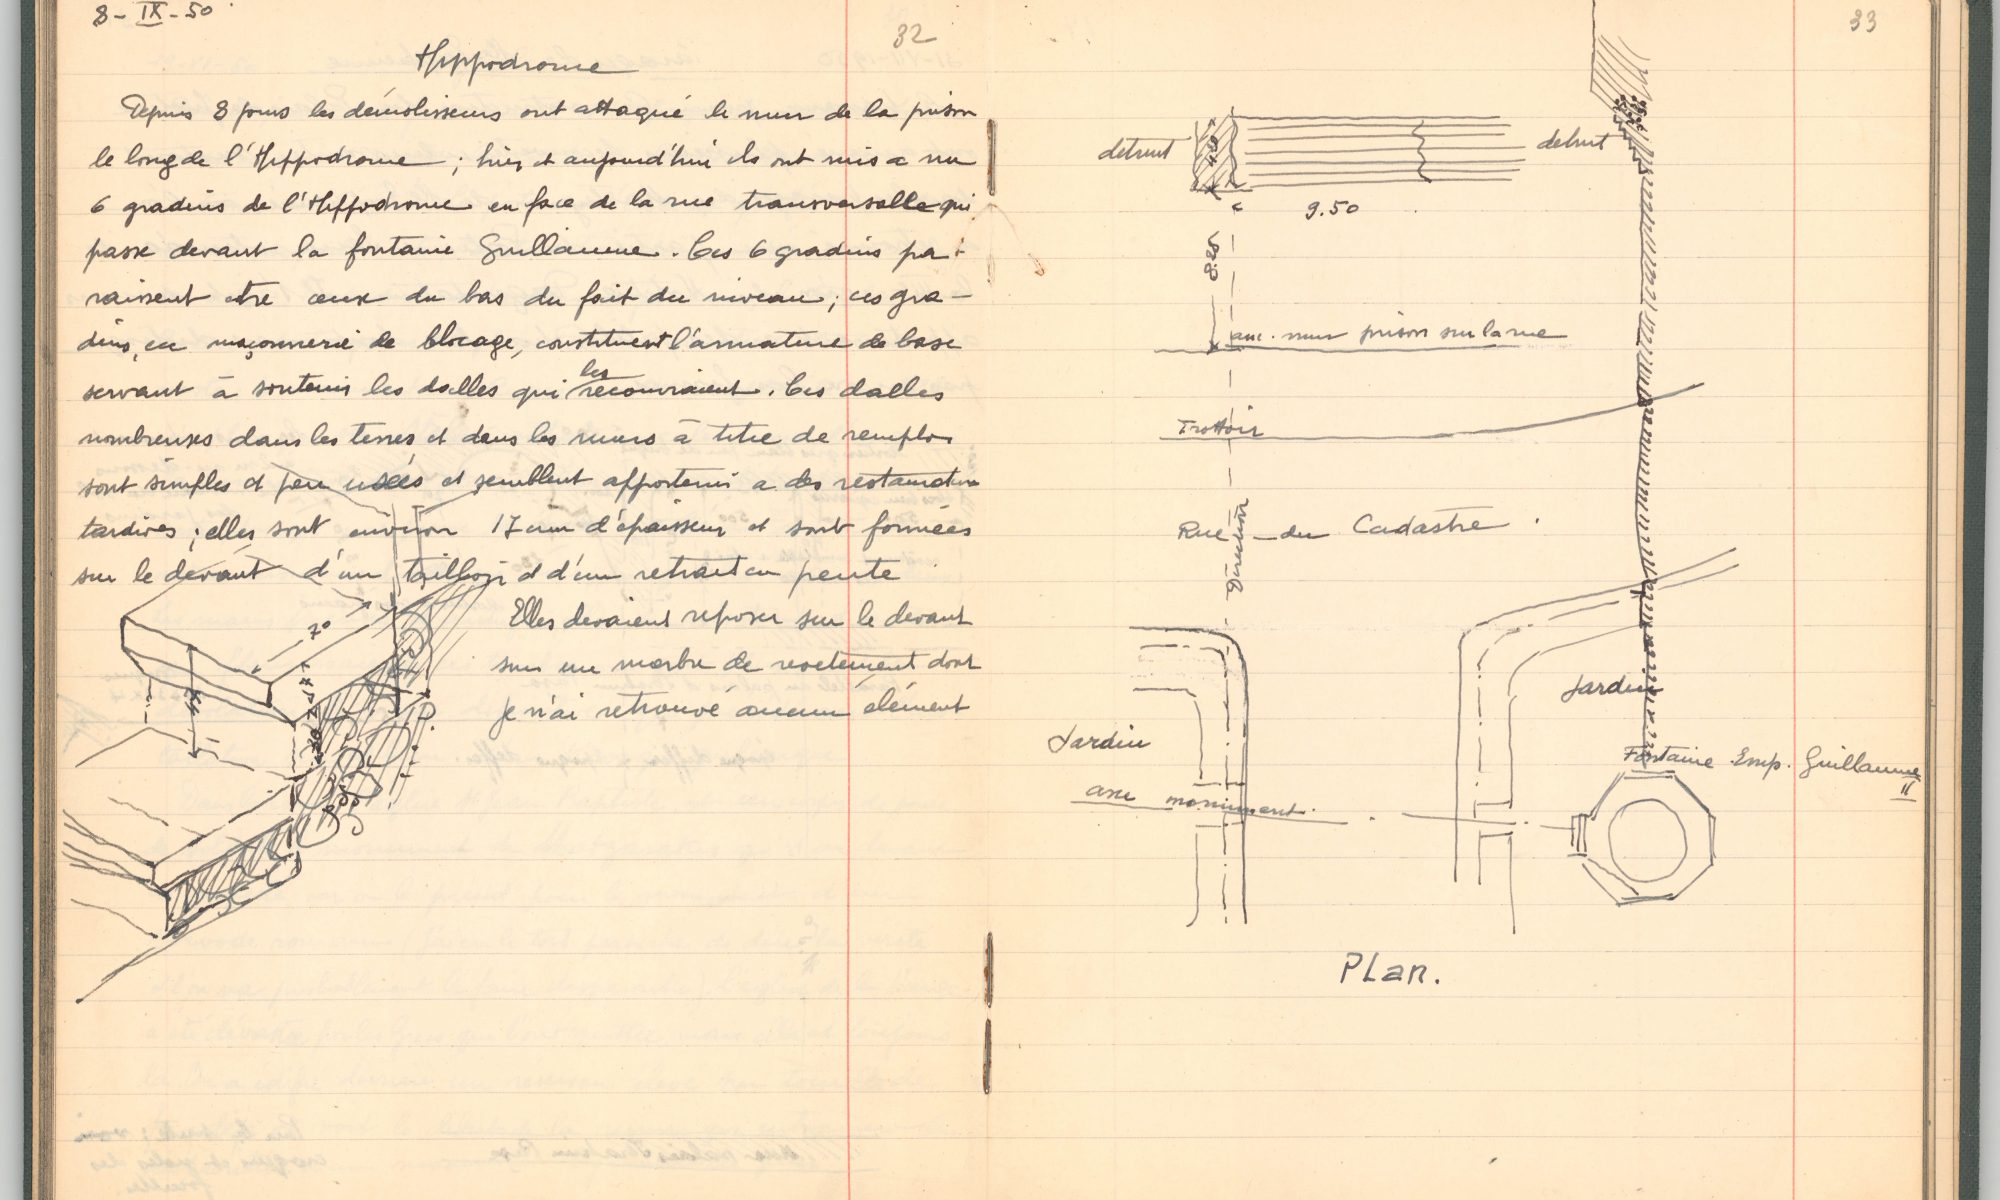 8-IX-50
32
Hippodrome
Depuis 8 jours les démolisseurs ont attaqué le mur de la prison
le long de l'Hippodrome ; hier et aujourd'hui ils ont mis a nu
6 gradins de l'Hippodrome en face de la rue transversalle qui
passe devant la fontaine Guillaume. Ces 6 gradins pa-
raissent etre ceux du bas du fait du niveau ; ces gra-
dins, en maçonnerie de blocage, constituent l'armature de base
servant à soutenir les dalles qui les recouvraient. Ces dalles
nombreuses dans les terres et dans les murs à titre de remplois
sont simples et peu usées et semblent appartenir a des restauration
tardives ; elles sont environ 17 cm d'épaisseur et sont formées
sur le devant d'un et d'un retrait en pente
Elles devaient reposer sur le devant
sur un marbre de revetement dont
je n'ai retrouvé aucun élément
70
17
33
detruit
4.50
detruit
9.50
8.25
anc. mur prison sur la rue
Trottoir
Rue du Cadastre.
Direction
Jardin
Jardin
Fontaine Emp. Guillaume
II
axe monument.
PLan.